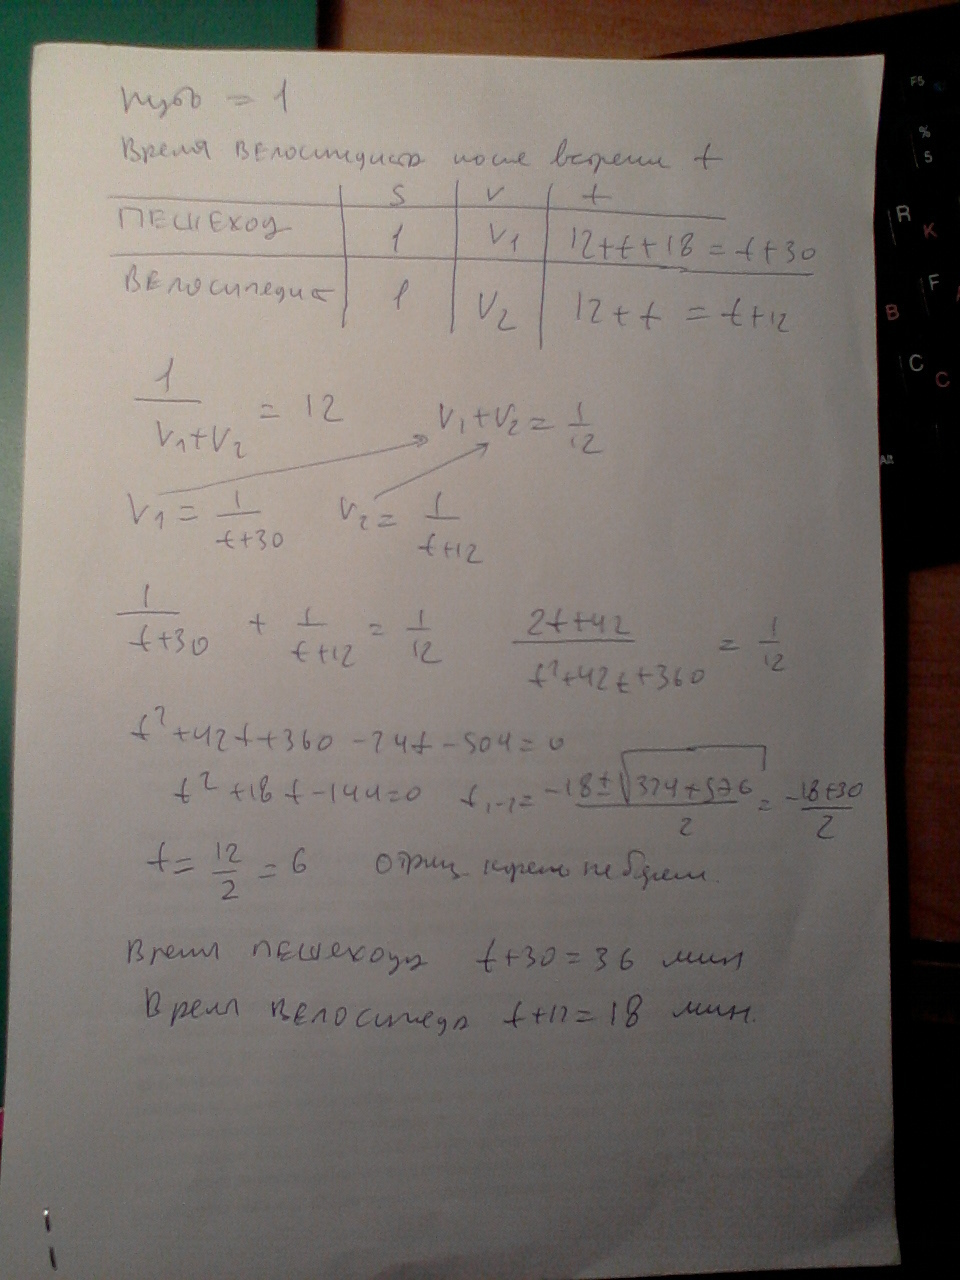 путь = 1
Время велосипедиста после встречи t
S V t
ПЕШЕХОД 1 V₁ 12+t+18 = t+30
Велосипедист 1 V₂ 12+t = t+12
1/(V₁+V₂) = 12 V₁+V₂ = 1/12
V₁ = 1/(t+30) V₂ = 1/(t+12)
1/(t+30) + 1/(t+12) = 1/12 (2t+42)/(t²+42t+360) = 1/12
t²+42t+360-24t-504=0
t²+18t-144=0 t₁,₂= (-18±√(324+576))/2 = (-18+30)/2
t = 12/2 = 6 отриц. корень не берем.
Время ПЕШЕХОДА t+30=36 мин
Время Велосипеда t+12=18 мин.
F5
%
5
R
К
F
В
C
С
Alt